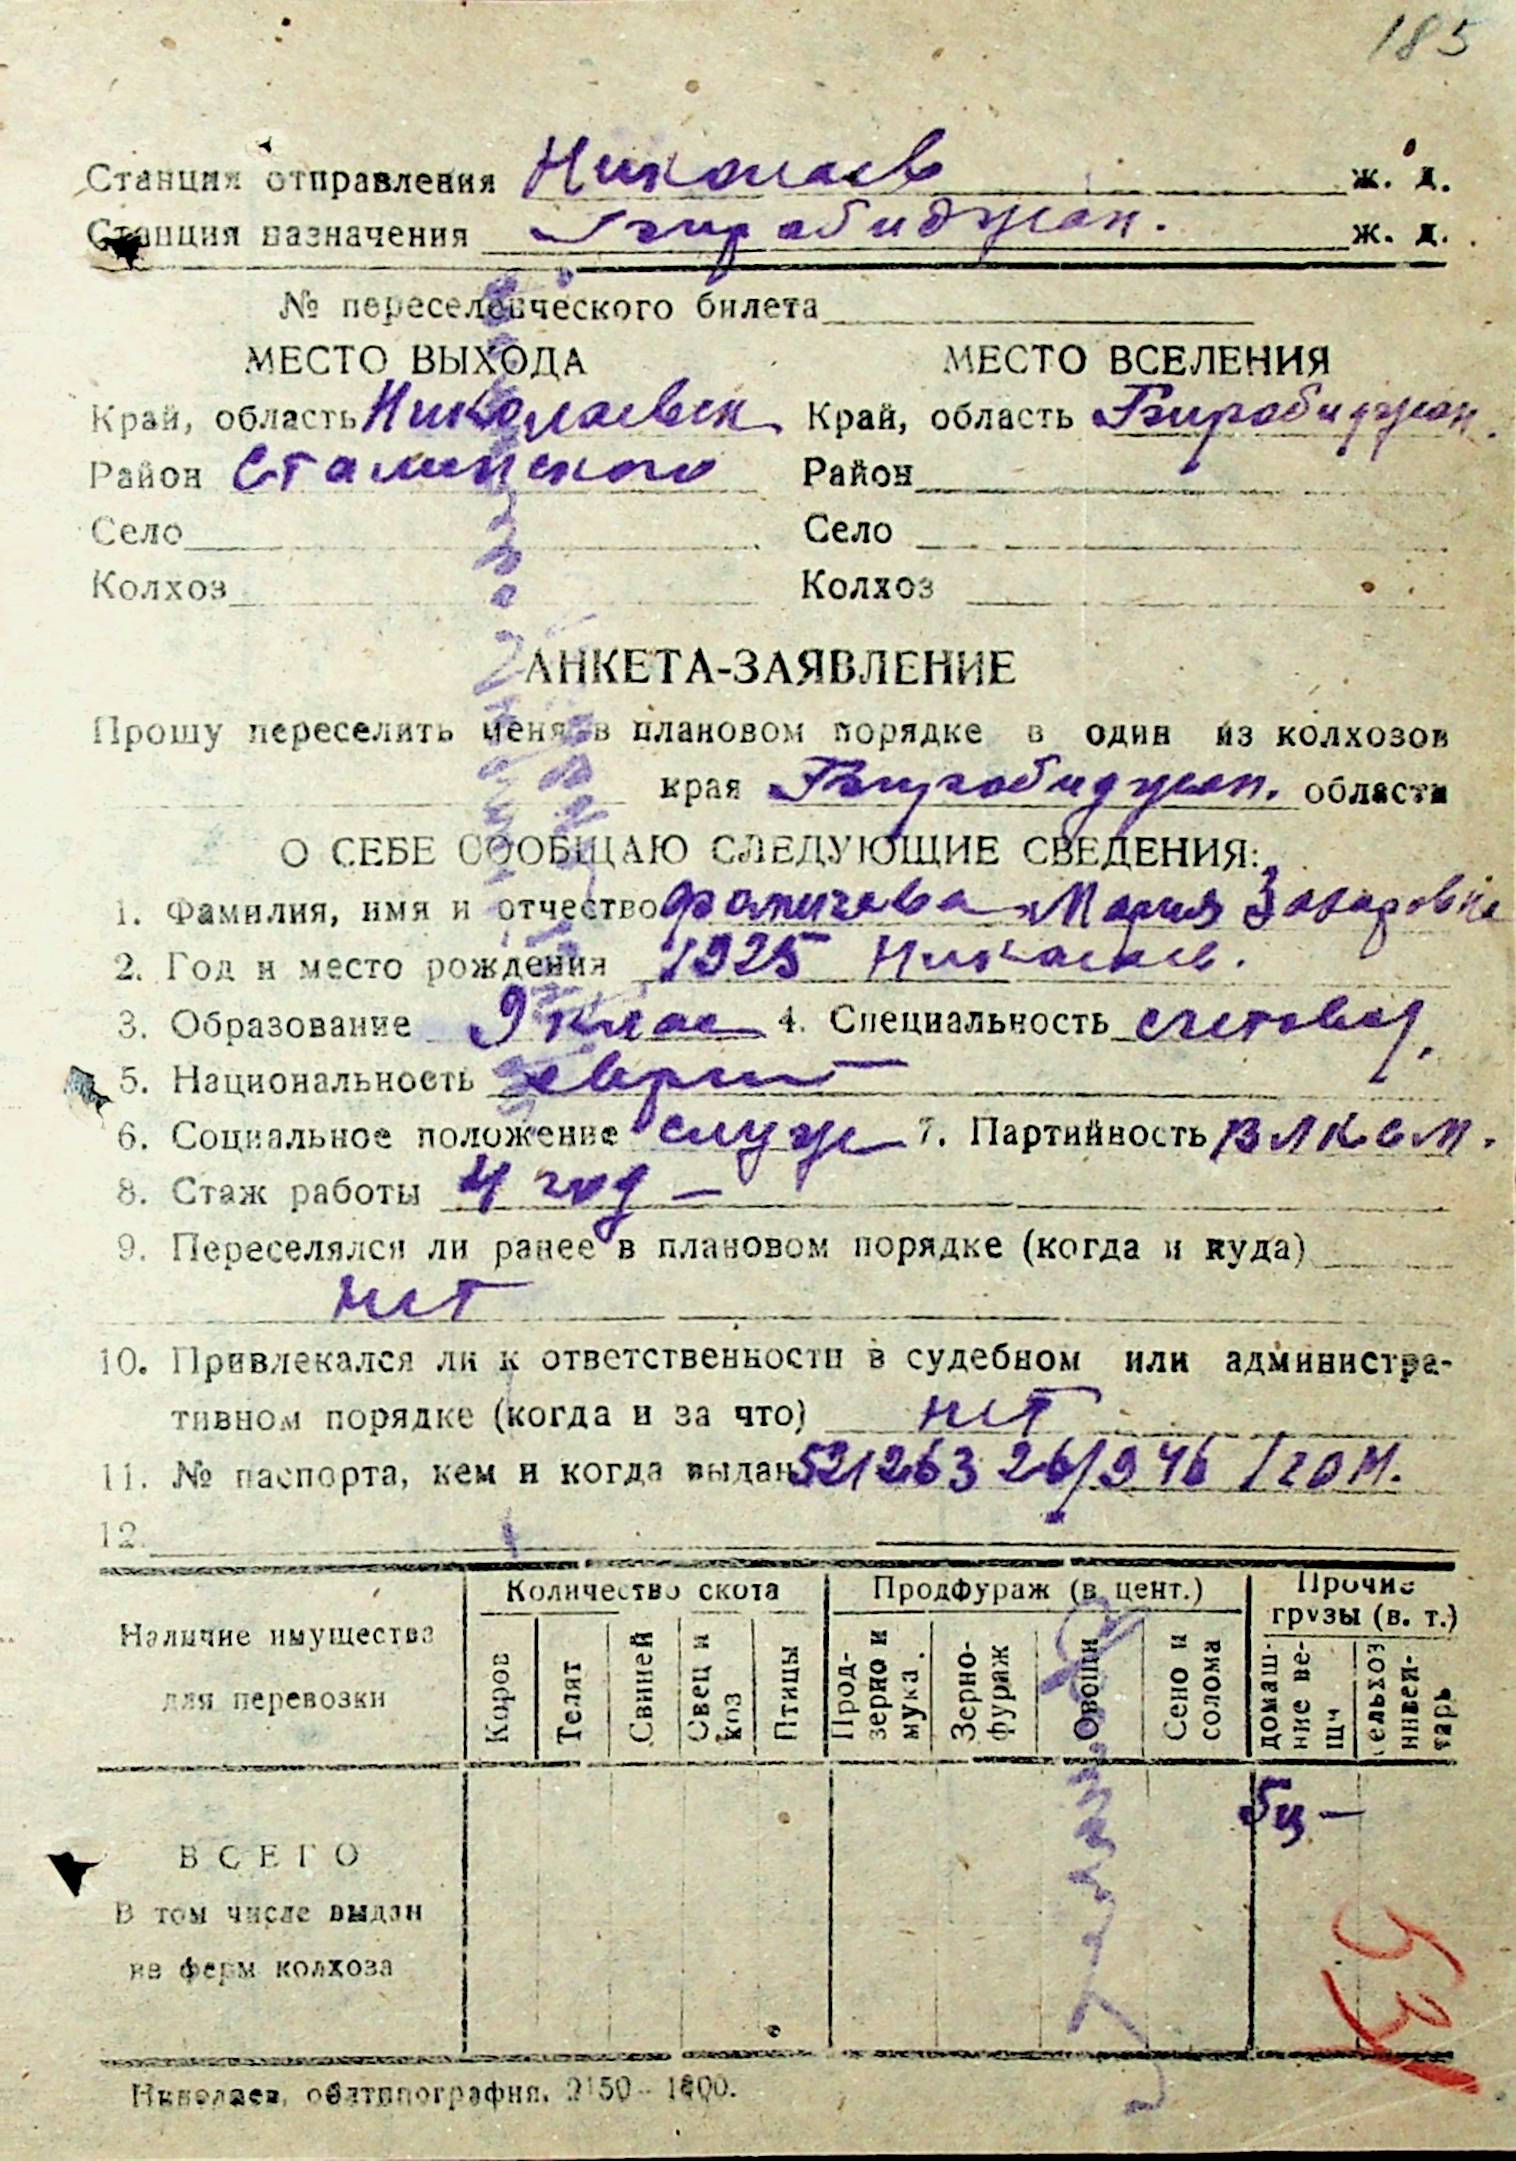 185
Станция отправления Николаев ж. д.
Станция назначения Биробиджан. ж. д.
№ переселенческого билета
МЕСТО ВЫХОДА МЕСТО ВСЕЛЕНИЯ
Край, область Николаевск Край, область Биробиджан.
Район Сталинского Район
Село Село
Колхоз Колхоз
АНКЕТА-ЗАЯВЛЕНИЕ
Прошу переселить меня в плановом порядке в один из колхозов
края Биробиджан. области
О СЕБЕ СООБЩАЮ СЛЕДУЮЩИЕ СВЕДЕНИЯ:
1. Фамилия, имя и отчество Мария Захаровна
2. Год и место рождения 1925 Николаев.
3. Образование 9 клас 4. Специальность счетовод.
5. Национальность еврей
6. Социальное положение служ 7. Партийность ВЛКСМ.
8. Стаж работы 4 год —
9. Переселялся ли ранее в плановом порядке (когда и куда)
нет
10. Привлекался ли к ответственности в судебном или администра-
тивном порядке (когда и за что) нет
11. № паспорта, кем и когда выдан 521263 26/946 1 гом.
12.
Наличие имущества для перевозки
Количество скота
Коров Телят Свиней Овец и коз Птицы
Продфураж (в цент.)
Прод-зерно и мука. Зерно-фураж Овощи Сено и солома
Прочие грузы (в. т.)
домаш-ние ве-щи сельхоз инвен-тарь
5ц —
ВСЕГО
В том числе выдан
из ферм колхоза
53
Николаев, облтипография. 2150 - 1800.